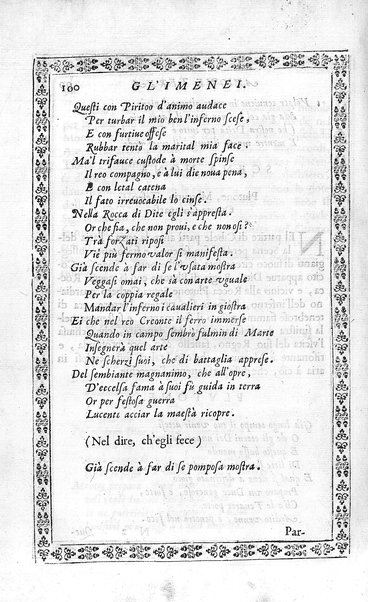 100 GL'IMENEI.
Questi con Piritoo d'animo audace
Per turbar il mio ben l'inferno scese,
E con furtiue offese
Rubbar tentò la marital mia face.
Ma'l trifauce custode à morte spinse
Il reo compagno, e à lui die noua pena,
E con letal catena
Il fato irreuocabile lo cinse.
Nella Rocca di Dite egli s'appresta.
Or che fia, che non proui, e che non osi?
Trà forzati riposi
Vie più fermo valor si manifesta.
Già scende à far di se l'vsata mostra
Veggasi omai, che sà con arte vguale
Per la coppia regale
Mandar l'inferno i caualieri in giostra
Ei che nel reo Creonte il ferro immerse
Quando in campo sembrò fulmin di Marte
Insegnerà quel arte
Ne scherzi suoi, che di battaglia apprese.
Del sembiante magnanimo, che all'opre,
D'eccelsa fama à suoi fù guida in terra
Or per festosa guerra
Lucente acciar la maestà ricopre.
(Nel dire, ch'egli fece)
Già scende à far di se pomposa mostra.
Par-